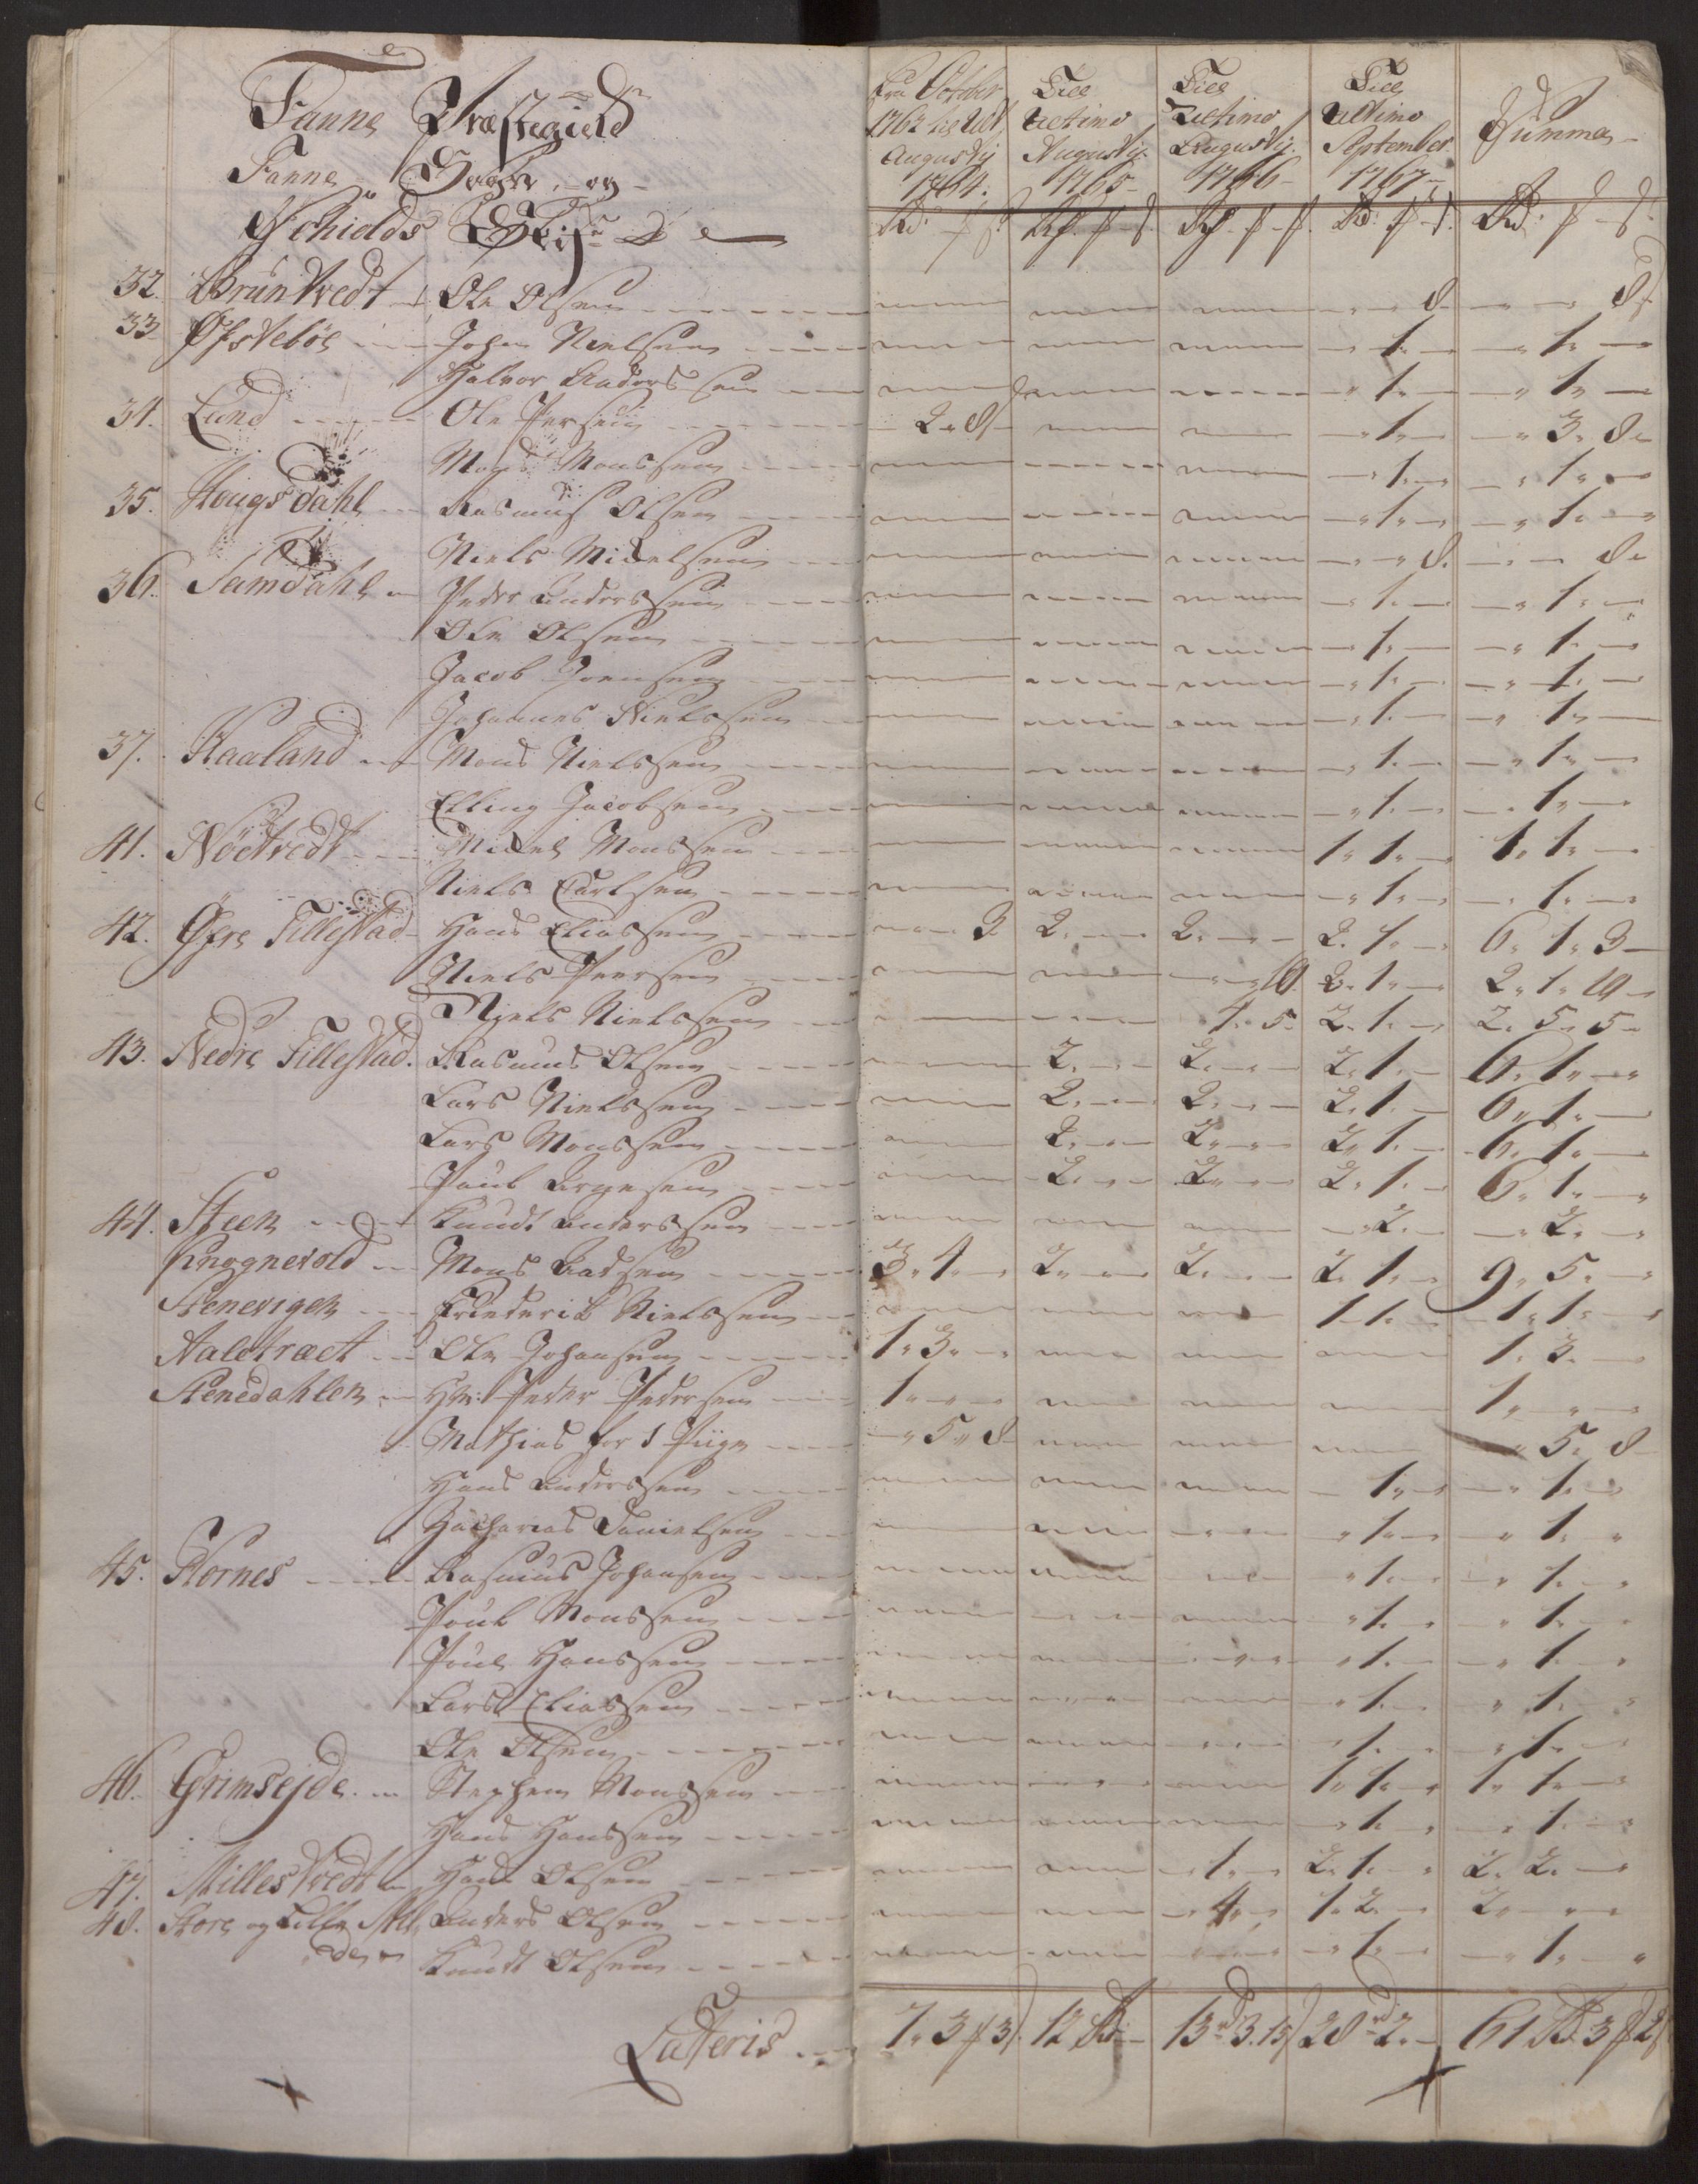 Fanne Præstegield
Fanne Sogn, og
Schiolds Skibr:e
Fra October 1762 til Ult. Augusty 1764.
Till Ultimo Augusty 1765
Till Ultimo Augusty 1766
Till Ultimo September 1767
Summa
32. Bruntvedt Ole Olsen 8 8
33. Øfstebøe Johan Nielsen 1 1
Halvor Anderssen 1 1
34. Lund Ole Persen 2. 8 1 3. 8
Mons Monssen 1 1
35. Hougsdahl Rasmus Olsen 1 1
Niels Mickelsen 8 8
36. Samdahl Peder Anderssen 1 1
Ole Olsen 1 1
Jacob Joensen 1 1
Johannes Nielssen 1 1
37. Haaland Mons Nielssen 1 1
Elling Jacobsen 1 1
41. Nöetvedt Mickel Monssen 1. 1 1. 1
Niels Carlsen 1 1
42. Øfre Tillestad Hans Eliassen 3 2. 2. 2. 1 6. 1. 3
Niels Peersen 10 2. 1 2. 1. 10
Niels Nielssen 1. 5 2. 1 2. 5. 5
43. Nedre Tillestad. Rasmus Olsen 2. 2. 2. 1 6. 1
Lars Nielssen 2. 2. 2. 1 6. 1
Lars Monssen 2. 2. 2. 1 6. 1
Poul 2. 2. 2. 1 6. 1
44. Steen Knudt Anderssen 2 2
Krognevold Mons 3. 4 2. 2. 2. 1 9. 5
Stenevigen Friderik Nielssen 1. 1 1. 1
Aaletræet Ole Johansen 1. 3 1. 3
Stenedahlen Hr: Peder Pedersen 1 1
Mathias for 1 Piige 5. 8 5. 8
Hans Anderssen 1 1
Zacharias Danielsen 1 1
45. Hornes Rasmus Johansen 1 1
Poul Monssen 1 1
Poul Hanssen 1 1
Lars Eliassen 1 1
Ole Olsen 1 1
46. Grimsejde Stephen Monssen 1. 1 1. 1
Hans Hanssen 1 1
47. Milles tvedt Hans Olsen 1 2. 1 2. 2
48. Store og Lille Anders Olsen 4 1. 2 2
Knudt Olsen 1 1
Lateris 7. 3 3 12 Rd 13 rd 3. 15 28 rd 2. 61 Rd. 3 2